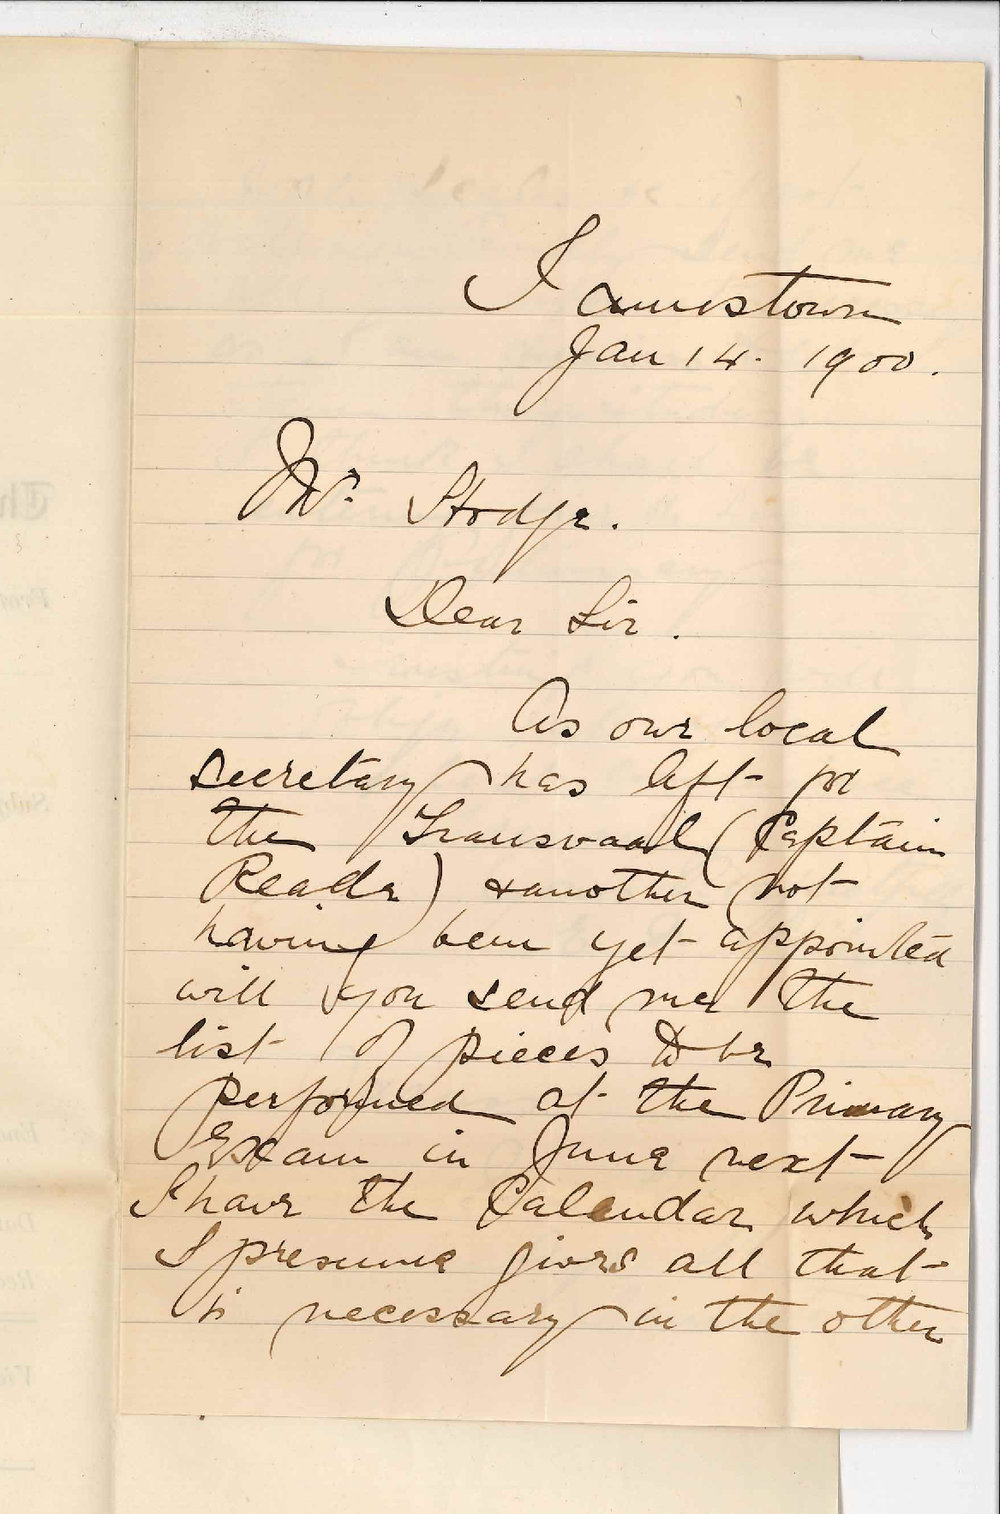 Jamestown
Jan 14. 1900.
Mr. Hodge.
Dear Sir.
As our local
secretary has left for
the Transvaal (Captain
Reade) & another not
having been yet appointed
will you send me the
list of pieces to be
performed at the Primary
Exam in June next
I have the Calendar which
I presume gives all that
is necessary in the other